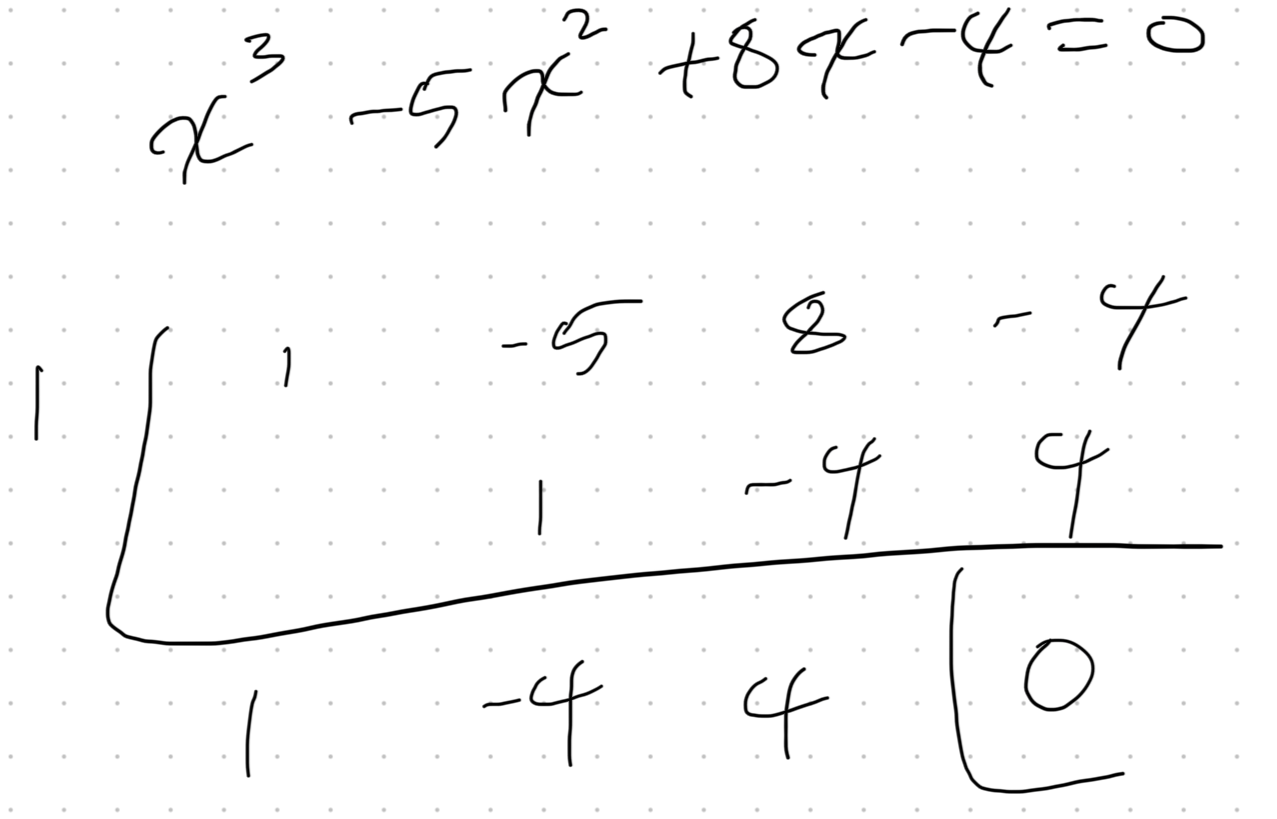 x³ -5x² +8x -4 = 0
1 1 -5 8 - 4
1 -4 4
1 -4 4 0